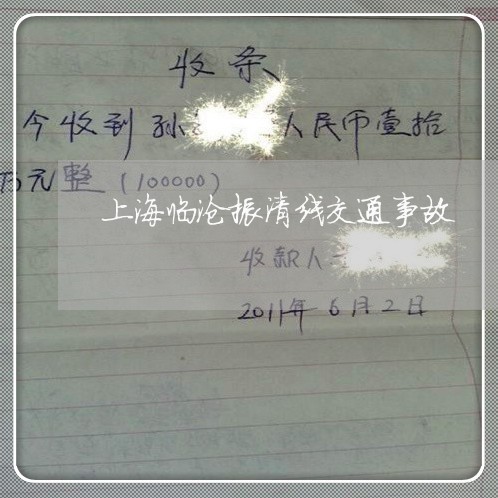 收条
今收到孙 人民币壹拾
万元整(100000)
上海临沧振清线交通事故
收款人
2011年6月2日